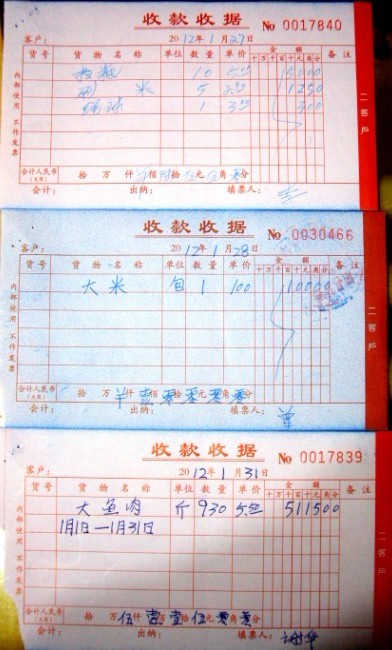 收款收据 No 0017840
客户： 2012年1月27日
货号 货物名称 单位 数量 单价 金额 备注
十万千百十元角分
10
米 5 1250
1 300
合计人民币(大写) 拾 万 仟 佰 拾 元 角 零分
会计： 出纳： 填票人：
内部使用 不作发票
二客户
收款收据 No 0030466
客户： 2012年1月28日
货号 货物名称 单位 数量 单价 金额 备注
十万千百十元角分
大米 包 1 100 10000
合计人民币(大写) 拾 万 仟 壹佰 零拾 零元 零角 零分
会计： 出纳： 填票人： 曾
内部使用 不作发票
二客户
收款收据 No 0017839
客户： 2012年1月31日
货号 货物名称 单位 数量 单价 金额 备注
十万千百十元角分
大鱼肉 斤 930 5.50 511500
1月1日—1月31日
合计人民币(大写) 拾 万 伍仟 壹佰 壹拾 伍元 零角 零分
会计： 出纳： 填票人：
内部使用 不作发票
二客户